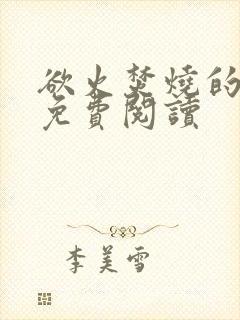 欲火焚燒的
免費閱讀
李美雪